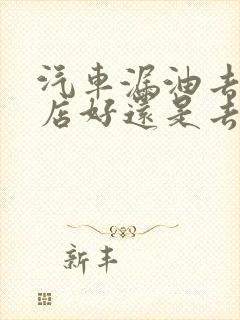 汽車漏油去
店好還是去
新丰